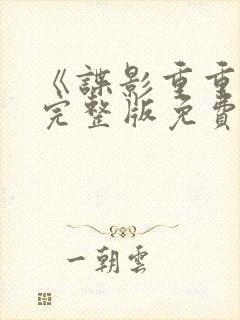 《諜影重重
完整版免費
一朝雲